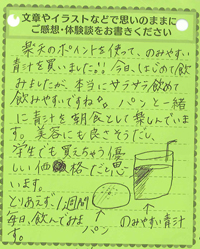 文章やイラストなどで思いのままに
ご感想・体験談をお書きください
楽天のポイントを使って、のみやすい
青汁を買いました!! 今日、はじめて飲
みましたが、本当にサラサラ飲めて
飲みやすいですね。パンと一緒
に青汁を朝食として楽しんでいま
す。美容にも良さそうだし、
学生でも買えちゃう優
しい価格だと思
います。
とりあえず、1週間
毎日、飲んでみよ
パン
のみやすい青汁